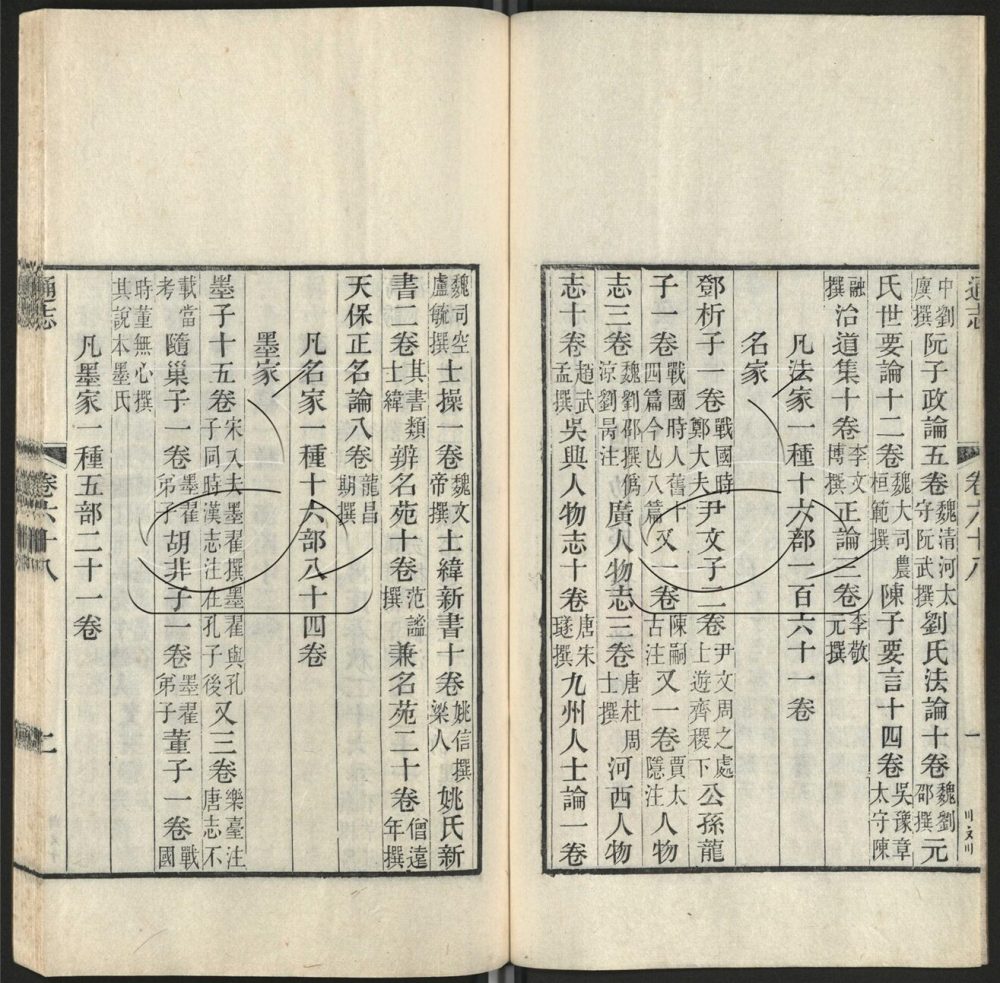 通志 卷六十八 一
中劉廙撰阮子政論五卷魏清河太守阮武撰劉氏法論十卷魏劉邵撰元
氏世要論十二卷魏大司農桓範撰陳子要言十四卷吳豫章太守陳
融撰治道集十卷李文博撰正論三卷李敬元撰
凡法家一種十六部一百六十一卷
名家
鄧析子一卷戰國時鄭大夫尹文子二卷尹文周之處士遊齊稷下公孫龍
子一卷戰國時人舊十四篇今亾八篇又一卷陳嗣古注又一卷賈大隱注人物
志三卷魏劉邵撰僞涼劉昺注廣人物志三卷唐杜周士撰河西人物
志十卷趙武孟撰吳興人物志十卷唐宋璲撰九州人士論一卷
魏司空盧毓撰士操一卷魏文帝撰士緯新書十卷姚信撰梁人姚氏新
書二卷其書類士緯辨名苑十卷范謐撰兼名苑二十卷僧遠年撰
天保正名論八卷龍昌期撰
凡名家一種十六部八十四卷
墨家
墨子十五卷宋大夫墨翟撰墨翟與孔子同時漢志注在孔子後又三卷樂臺注唐志不
載當考隨巢子一卷墨翟弟子胡非子一卷墨翟弟子董子一卷戰國
時董無心撰其說本墨氏
凡墨家一種五部二十一卷
通志 卷六十八 二